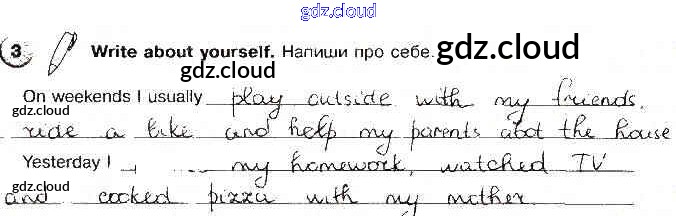 gdz.cloud
3 Write about yourself. Напиши про себе. gdz.cloud
gdz.cloud
On weekends I usually play outside with my friends,
gdz.cloud
ride a bike and help my parents abot the house
Yesterday I my homework, watched TV
gdz.cloud
and cooked pizza with my mother